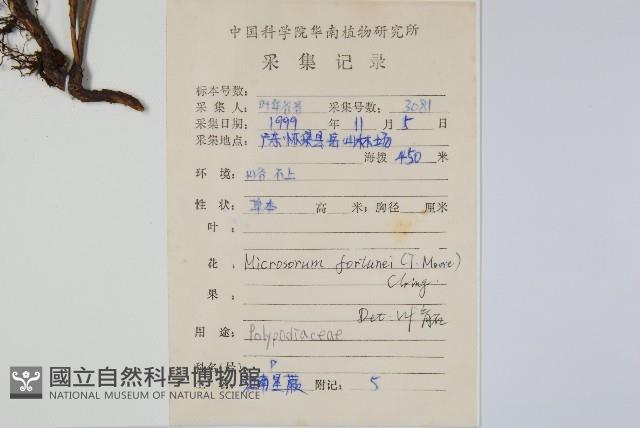 中国科学院华南植物研究所
采集记录
标本号数：
采集人：叶华谷等 采集号数：3081
采集日期：1999年11月5日
采集地点：广东怀集县 山林场
海拨450米
环境：山谷 石上
性状：草本 高 米；胸径 厘米
叶：
花：Microsorum fortunei (T. Moore)
Ching.
果：
Det. 叶育石
用途：Polypodiaceae
科名(号) P
江南星蕨 附记：5
國立自然科學博物館
NATIONAL MUSEUM OF NATURAL SCIENCE